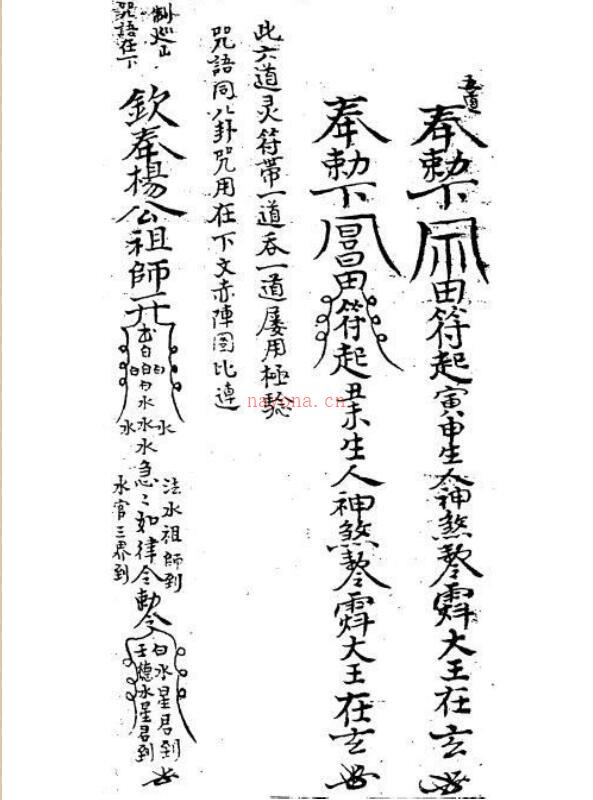 奉勅下田符起寅申生人神煞
大王在玄
奉勅下田符起丑未生人神煞
大王在玄
此六道灵符带一道吞一道屡用極驗
咒語同八卦咒用在下文赤陣图比連
制巡山
咒語在下
欽奉楊公祖師
水水水
水水
急急如律令勅令
法水祖師到
水官三界到
白水星君到
壬德水星君到
nayona.cn